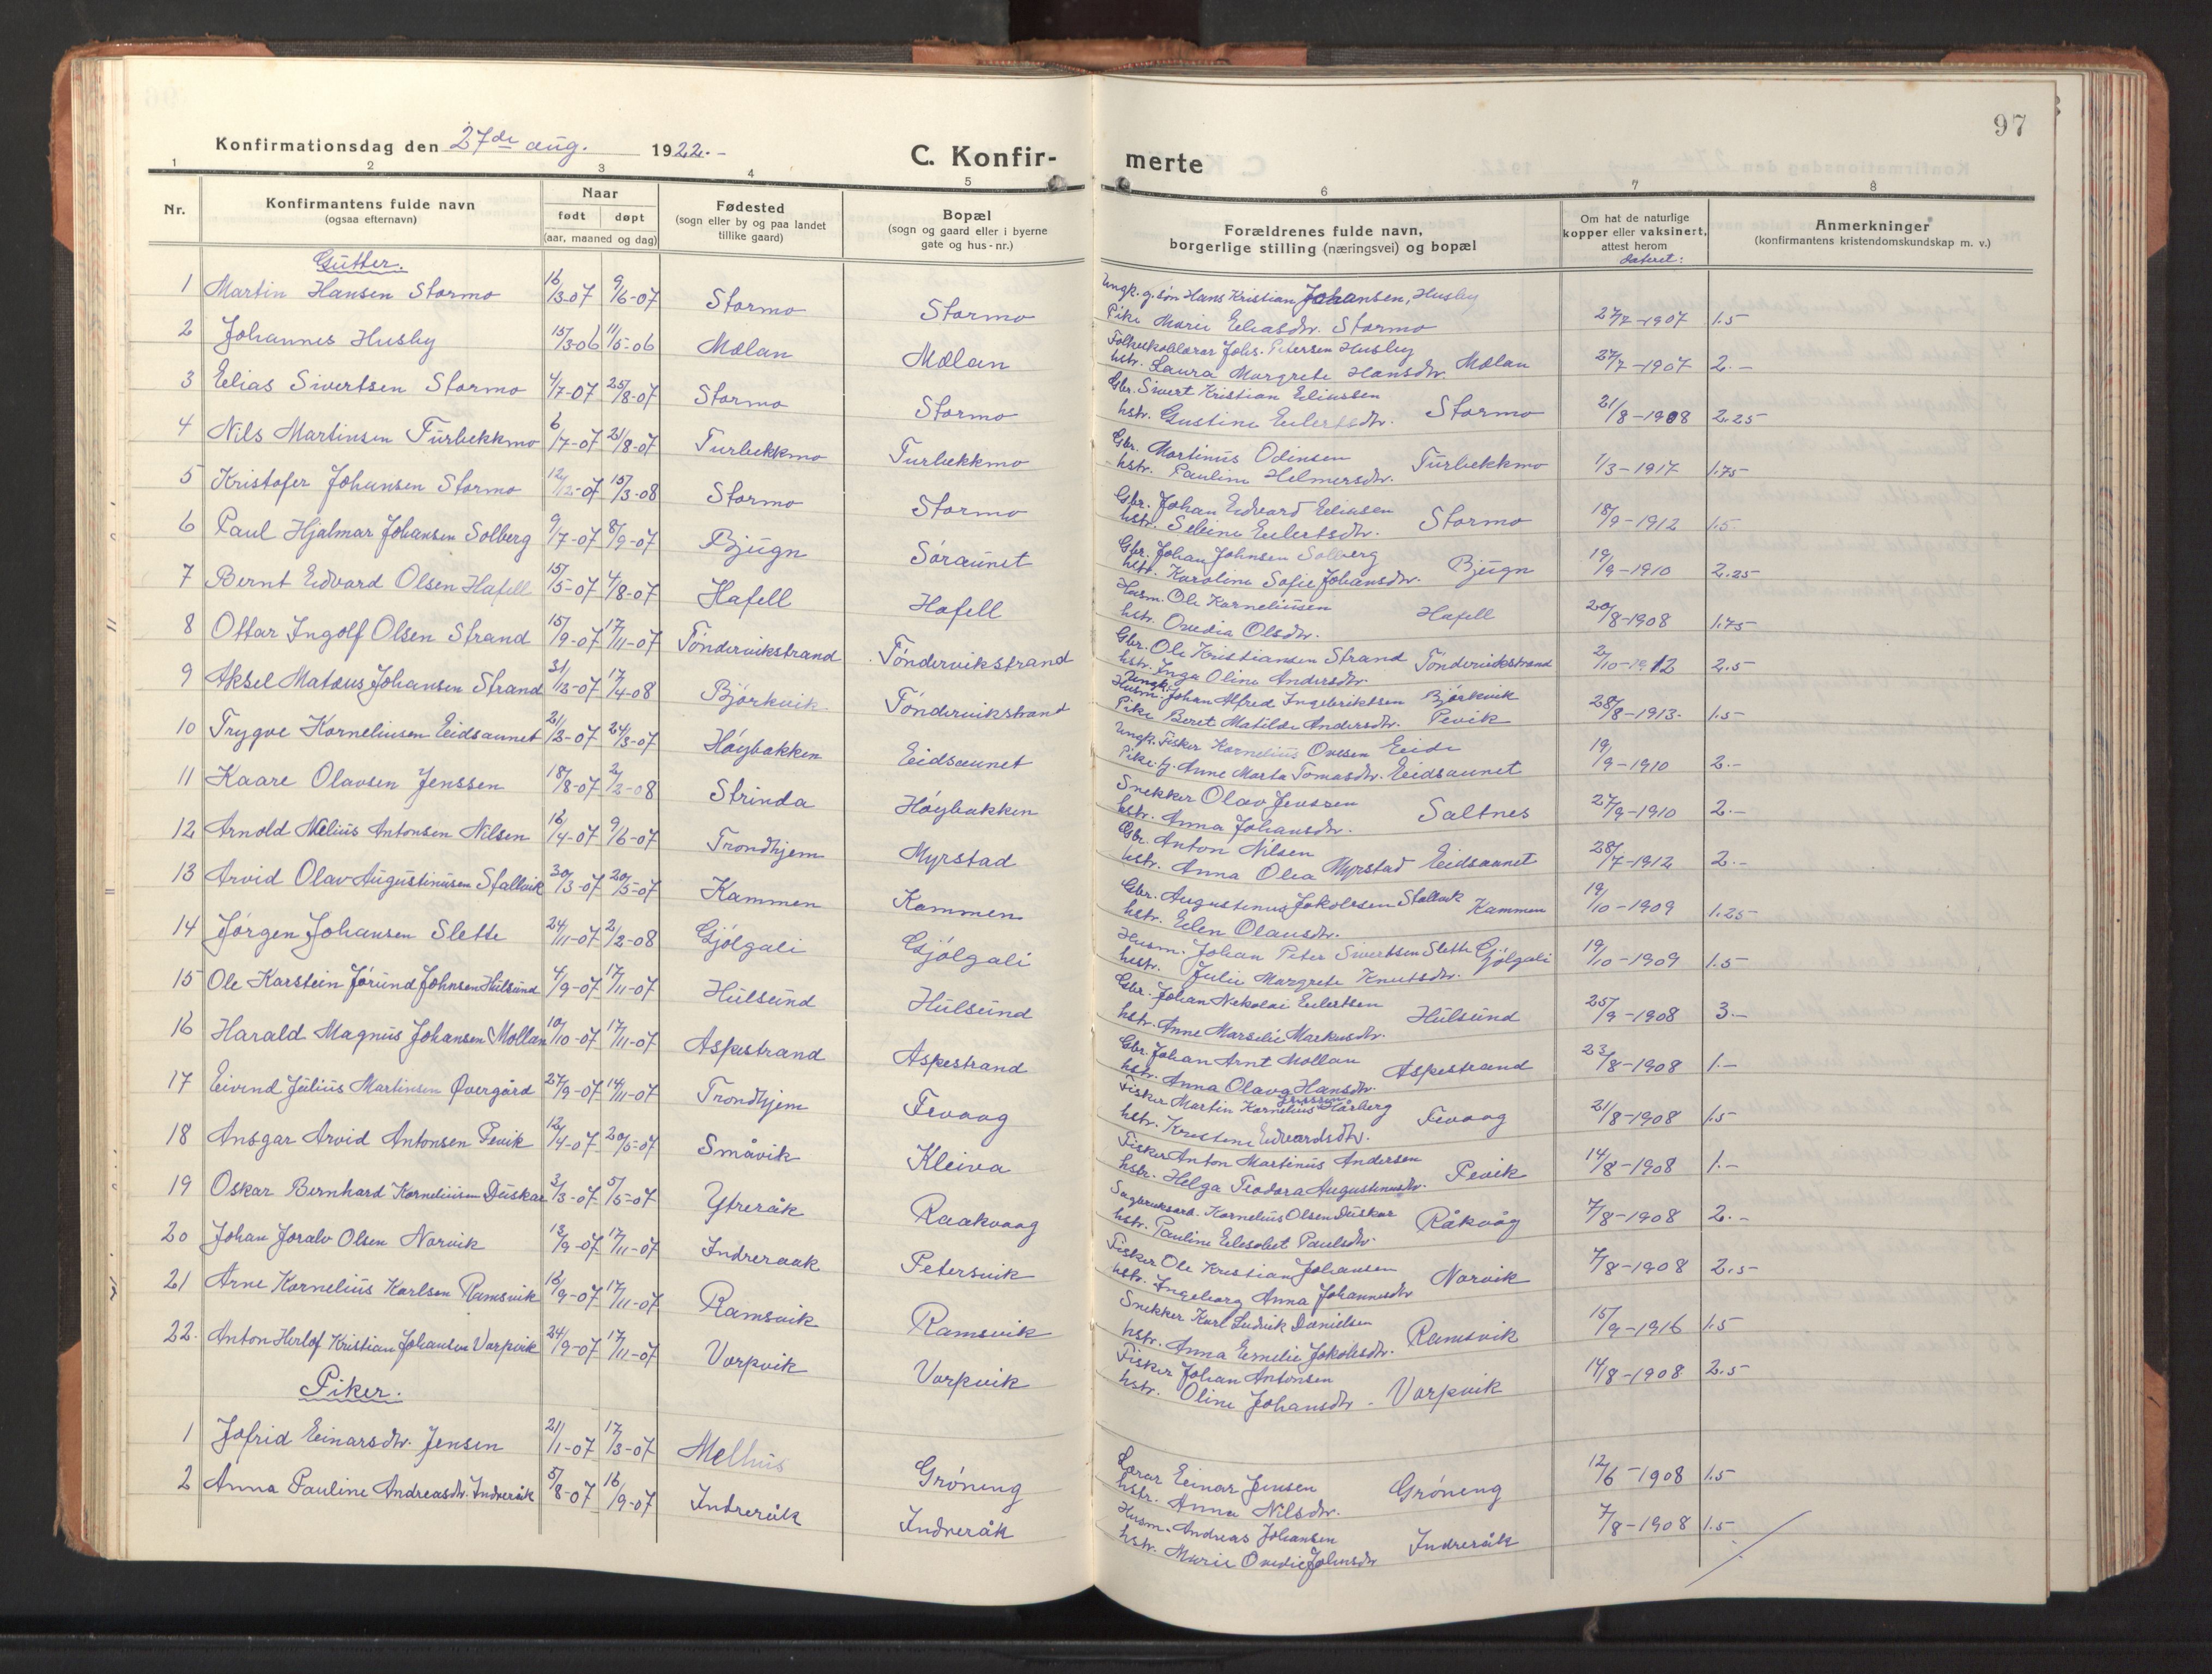 97
Konfirmationsdag den 27de aug. 1922.-
C. Konfir-
merte
1 2 3 4 5 6 7 8
Nr.
Konfirmantens fulde navn
(ogsaa efternavn)
Naar
født døpt
(aar, maaned og dag)
Fødested
(sogn eller by og paa landet
tillike gaard)
Bopæl
(sogn og gaard eller i byerne
gate og hus-nr.)
Forældrenes fulde navn,
borgerlige stilling (næringsvei) og bopæl
Om hat de naturlige
kopper eller vaksinert,
attest herom
dateret:
Anmerkninger
(konfirmantens kristendomskundskap m. v.)
Gutter.
1 Martin Hansen Stormo 16/3-07 9/6-07 Stormo Stormo
Ungk. g.søn Hans Kristian Johansen, Husby
Pike Marie Eliasdtr. Stormo 27/7-1907 1.5
2 Johannes Husby 15/3-06 11/5-06 Mælan Mælan
Folkeskolelærer Johs. Petersen Husby
hstr. Laura Margrete Hansdtr. Mælan 27/7-1907 2.-
3 Elias Sivertsen Stormo 4/7-07 25/8-07 Stormo Stormo
Gbr. Sivert Kristian Eliassen
hstr. Gustine Eilertsdtr. Stormo 21/8-1908 2.25
4 Nils Martinsen Turbekkmo 6/7-07 21/8-07 Turbekkmo Turbekkmo
Gbr. Martinus Odinsen
hstr. Pauline Helmersdtr. Turbekkmo 1/3-1917 1.75
5 Kristofer Johansen Stormo 12/12-07 15/3-08 Stormo Stormo
Gbr. Johan Edvard Eliasen
hstr. Seleine Eilertsdtr. Stormo 18/9-1912 1.5
6 Paul Hjalmar Johansen Solberg 9/7-07 8/9-07 Bjugn Søraunet
Gbr. Johan Johnsen Solberg
hstr. Karoline Sofie Johansdtr. Bjugn 19/9-1910 2.25
7 Bernt Edvard Olsen Hafell 15/5-07 4/8-07 Hafell Hafell
Husm. Ole Korneliussen
hstr. Ovedia Olsdtr. Hafell 20/8-1908 1.75
8 Ottar Ingolf Olsen Strand 15/9-07 17/11-07 Tøndervikstrand Tøndervikstrand
Gbr. Ole Kristiansen Strand
hstr. Inga Oline Andersdtr. Tøndervikstrand 2/10-1912 2.5
9 Aksel Matæus Johansen Strand 31/12-07 17/4-08 Bjørkvik Tøndervikstrand
Ungk.
Husm. Johan Alfred Ingebriktsen Bjørkvik
Pike Beret Matilde Andersdtr. Pevik 28/8-1913. 1.5
10 Trygve Korneliusen Eidsaunet 21/2-07 24/3-07 Høybakken Eidsaunet
Ungk. Fisker Kornelius Ovesen Eide
Pike g. Anne Marta Tomasdtr. Eidsaunet 19/9-1910 2.-
11 Kaare Olavsen Jenssen 18/8-07 2/2-08 Strinda Høybakken
Snekker Olav Jenssen
hstr. Anna Johansdtr. Saltnes 27/9-1910 2.-
12 Arnold Melius Antonsen Nilsen 16/4-07 9/6-07 Trondhjem Myrstad
Gbr. Anton Nilsen
hstr. Anna Olea Myrstad Eidsaunet 28/7-1912 2.-
13 Arvid Olav Augustinusen Stallvik 30/3-07 20/5-07 Kammen Kammen
Gbr. Augustinus Jakobsen Stallvik
hstr. Elen Olausdtr. Kammen 19/10-1909 1.25
14 Jørgen Johansen Slette 24/11-07 2/2-08 Gjølgali Gjølgali
Husm. Johan Peter Sivertsen Slette
hestr. Julie Margrete Knutsdtr. Gjølgali 19/10-1909 1.5
15 Ole Karstein Jørund Johnsen Hulsund 4/9-07 17/11-07 Hulsund Hulsund
Gbr. Johan Nikolai Eilertsen
hstr. Anne Marselie Markusdtr. Hulsund 25/9-1908 3.-
16 Harald Magnus Johansen Mollan 10/10-07 17/11-07 Aspestrand Aspestrand
Gbr. Johan Arnt Mollan
hstr. Anna Olava Hansdtr. Aspestrand 23/8-1908 1.-
17 Eivind Julius Martinsen Øvergård 27/9-07 14/11-07 Trondhjem Fevaag
Fisker Martin Kornelius Hårberg
hstr. Kristine Edvardsdtr. Fevaag 21/8-1908 1.5
18 Ansgar Arvid Antonsen Pevik 12/4-07 20/5-07 Småvik Kleiva
Fisker Anton Martinus Andersen
hstr. Helga Teodora Augustinusdtr. Pevik 14/8-1908 1.-
19 Oskar Bernhard Korneliusen Duskar 3/3-07 5/5-07 Ytreråk Raakvaag
Sagbruksarb. Kornelius Olsen Duskar
hstr. Pauline Elesabet Paulsdtr. Råkvåg 7/8-1908 2.-
20 Johan Joralv Olsen Norvik 13/9-07 17/11-07 Indreraak Petersvik
Fisker Ole Kristian Johansen
hstr. Ingeborg Anna Johannesdtr Norvik 7/8-1908 2.5
21 Arne Kornelius Karlsen Ramsvik 16/9-07 17/11-07 Ramsvik Ramsvik
Snekker Karl Ludvik Danielsen
hstr. Anna Emelie Jakobsdtr. Ramsvik 15/9-1916 1.5
22. Anton Herlof Kristian Johansen Varpvik 24/9-07 17/11-07 Varpvik Varpvik
Fisker Johan Antonsen
hstr. Oline Johansdtr - Varpvik 14/8-1908 2.5
Piker.
1 Jofrid Einarsdtr. Jensen 21/1-07 17/3-07 Melhus Grøneng
Lærer Einar Jensen
hstr. Anna Nilsdtr. Grøneng 12/6-1908 1.5
2 Anna Pauline Andreasdtr. Indreråk 5/8-07 16/9-07 Indreråk Indreråk
Husm. Andreas Johansen
hstr. Marie Ovedie Johnsdtr Indreråk 7/8-1908 1.5